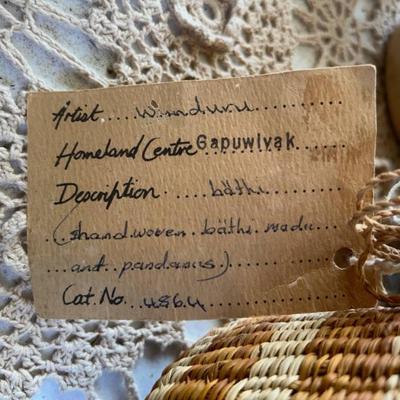 Artist....Wunduru............
Homeland Centre Gapuwiyak........
Description.....bäthi...........
(handwoven bäthi made
...and pandanus)...............
Cat. No....4564................